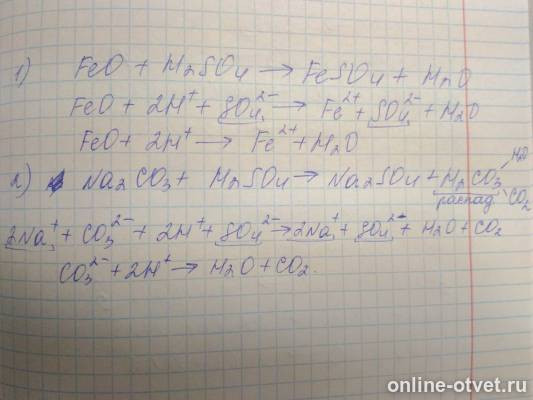 1) FeO + H₂SO₄ → FeSO₄ + H₂O
FeO + 2H⁺ + SO₄²⁻ → Fe²⁺ + SO₄²⁻ + H₂O
FeO + 2H⁺ → Fe²⁺ + H₂O
2) Na₂CO₃ + H₂SO₄ → Na₂SO₄ + H₂CO₃ H₂O
распад CO₂
2Na⁺ + CO₃²⁻ + 2H⁺ + SO₄²⁻ → 2Na⁺ + SO₄²⁻ + H₂O + CO₂
CO₃²⁻ + 2H⁺ → H₂O + CO₂.
online-otvet.ru